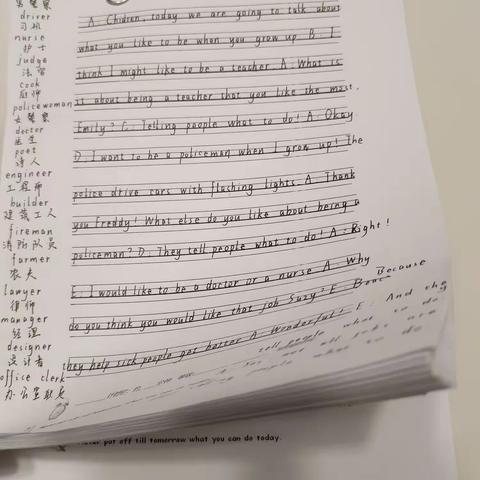 男警察
driver
司机
nurse
护士
judge
法官
cook
厨师
policewoman
女警察
doctor
医生
poet
诗人
engineer
工程师
builder
建筑工人
fireman
消防队员
farmer
农夫
lawyer
律师
manager
经理
designer
设计者
office clerk
办公室职员
A. Chidren, today we are going to talk about
what you like to be when you grow up B. I
think I might like to be a teacher. A. What is
it about being a teacher that you like the most,
Emily? C: Telling people what to do! A: Okay.
D: I want to be a policeman when I grow up! The
police drive cars with flashing lights. A. Thank
you Freddy! What else do you like about being a
policeman? D: They tell people what to do! A: Right!
E: I would like to be a doctor or a nurse A. Why
do you think you would like that job Suzy? E Because
they help sick people get better A. Wonderful! E: And the
tell people what to do
people what to do
put off till tomorrow what you can do today.